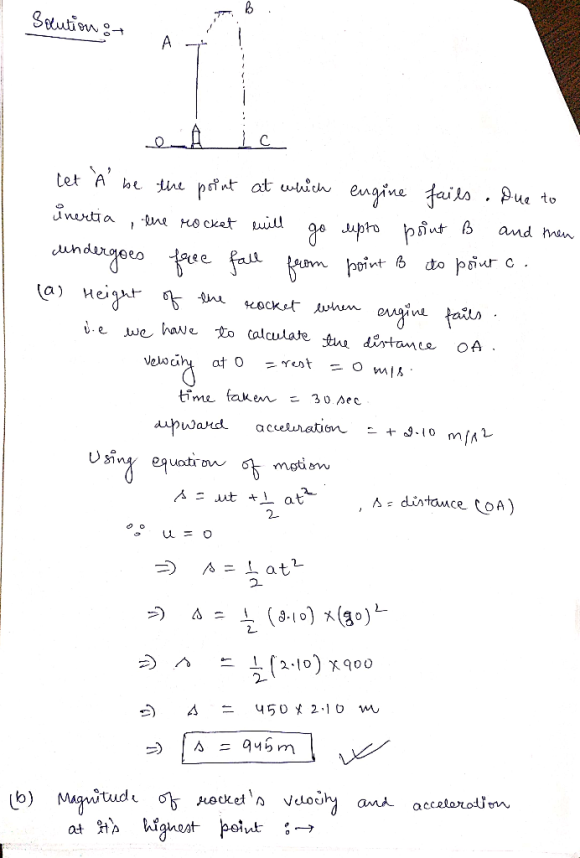 Solution :→
B
A
O C
Let 'A' be the point at which engine fails. Due to
inertia, the rocket will go upto point B and then
undergoes free fall from point B to point C.
(a) Height of the rocket when engine fails.
i.e we have to calculate the distance OA.
velocity at O = rest = 0 m/s.
time taken = 30 sec.
upward acceleration = + 2.10 m/s²
Using equation of motion
s = ut + 1/2 at² , s = distance (OA)
∵ u = 0
⇒ s = 1/2 at²
⇒ s = 1/2 (2.10) × (30)²
⇒ s = 1/2 (2.10) × 900
⇒ s = 450 × 2.10 m
⇒ s = 945 m
(b) Magnitude of rocket's velocity and acceleration
at it's highest point :→